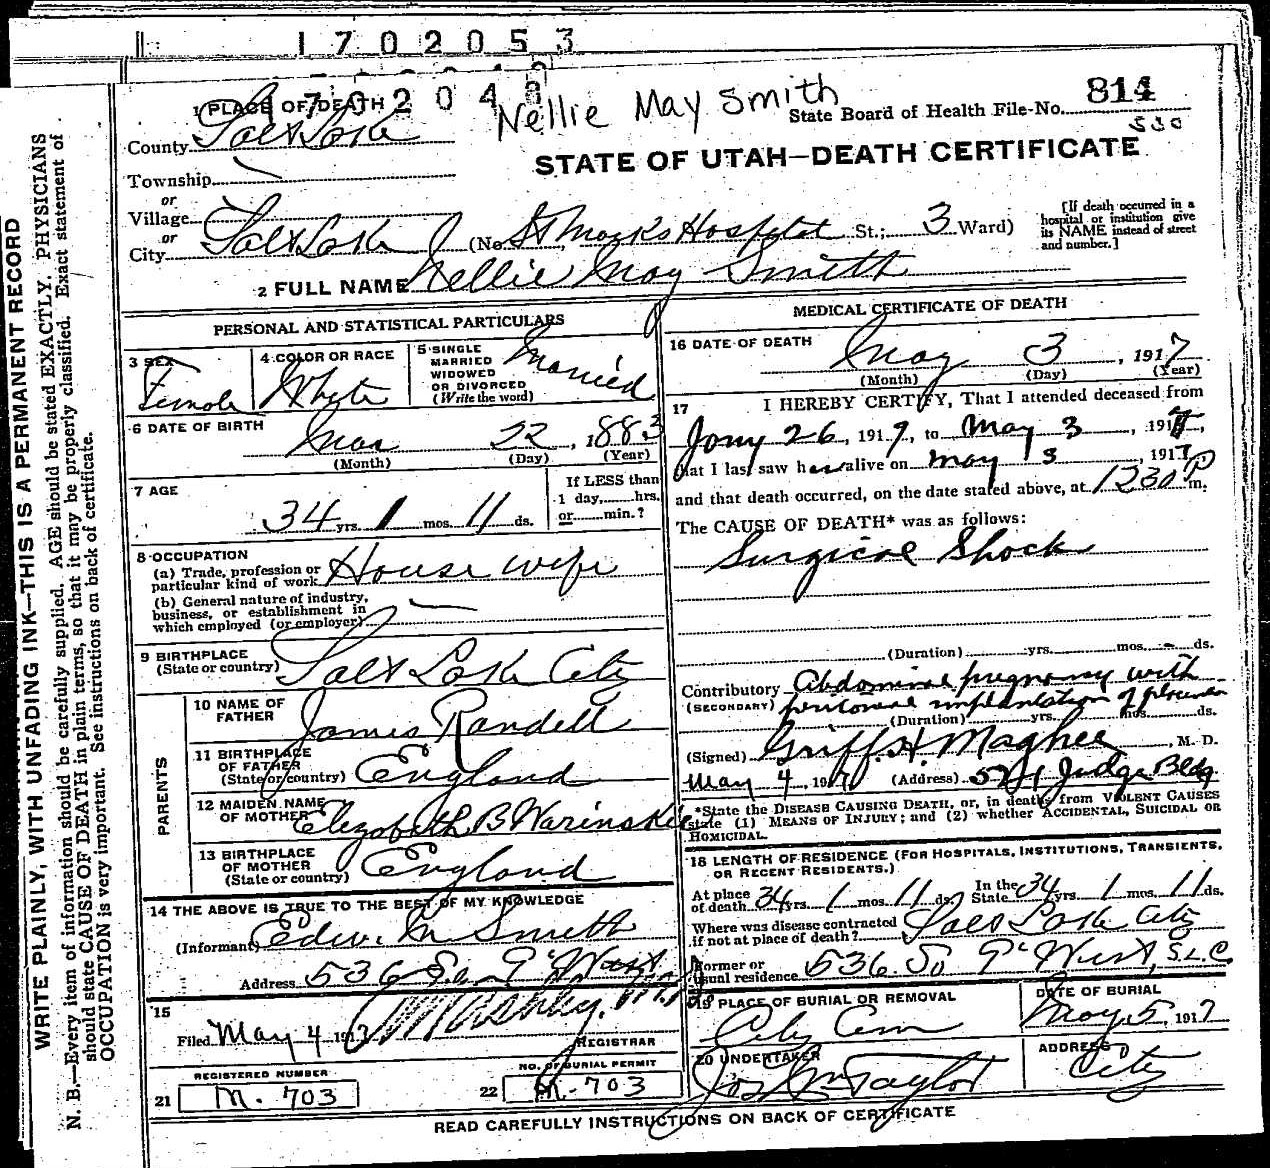 1702053
1702048
Nellie May Smith
State Board of Health File-No. 814
530
STATE OF UTAH—DEATH CERTIFICATE
1 PLACE OF DEATH
County Salt Lake
Township
or
Village
or
City Salt Lake (No. St Marks Hospital St.; 3 Ward)
[If death occurred in a hospital or institution give its NAME instead of street and number.]
2 FULL NAME Nellie May Smith
PERSONAL AND STATISTICAL PARTICULARS
3 SEX Female
4 COLOR OR RACE White
5 SINGLE MARRIED WIDOWED OR DIVORCED (Write the word) Married
6 DATE OF BIRTH Mar 22, 1883
(Month) (Day) (Year)
7 AGE 34 yrs. 1 mos. 11 ds.
If LESS than 1 day, hrs. or min.?
8 OCCUPATION
(a) Trade, profession or particular kind of work House wife
(b) General nature of industry, business, or establishment in which employed (or employer)
9 BIRTHPLACE (State or country) Salt Lake City
PARENTS
10 NAME OF FATHER James Randell
11 BIRTHPLACE OF FATHER (State or country) England
12 MAIDEN NAME OF MOTHER Elizabeth B Warinskie
13 BIRTHPLACE OF MOTHER (State or country) England
14 THE ABOVE IS TRUE TO THE BEST OF MY KNOWLEDGE
(Informant) Edw. M Smith
Address 536 So 9" West
15
Filed May 4 1917
REGISTRAR
REGISTERED NUMBER
21 M. 703
NO. OF BURIAL PERMIT
22 M-703
MEDICAL CERTIFICATE OF DEATH
16 DATE OF DEATH May 3, 1917
(Month) (Day) (Year)
17 I HEREBY CERTIFY, That I attended deceased from
Jany 26, 1917, to May 3, 1917,
that I last saw her alive on May 3, 1917
and that death occurred, on the date stated above, at 1230 P m.
The CAUSE OF DEATH* was as follows:
Surgical Shock
(Duration) yrs. mos. ds.
Contributory (SECONDARY) Abdominal pregnancy with
peritoneal implantation of placenta
(Duration) yrs. mos. ds.
(Signed) Griff. H. Maghee, M. D.
May 4, 1917 (Address) 521 Judge Bldg
*State the DISEASE CAUSING DEATH, or, in deaths from VIOLENT CAUSES
state (1) MEANS OF INJURY; and (2) whether ACCIDENTAL, SUICIDAL OR
HOMICIDAL.
18 LENGTH OF RESIDENCE (FOR HOSPITALS, INSTITUTIONS, TRANSIENTS,
OR RECENT RESIDENTS.)
At place of death 34 yrs. 1 mos. 11 ds. In the State 34 yrs. 1 mos. 11 ds.
Where was disease contracted if not at place of death? Salt Lake City
Former or usual residence 536 So 9" West, S.L.C.
19 PLACE OF BURIAL OR REMOVAL City Cem
DATE OF BURIAL May 5, 1917
20 UNDERTAKER Jos Wm Taylor
ADDRESS City
READ CAREFULLY INSTRUCTIONS ON BACK OF CERTIFICATE
WRITE PLAINLY, WITH UNFADING INK—THIS IS A PERMANENT RECORD
N. B.—Every item of information should be carefully supplied. AGE should be stated EXACTLY. PHYSICIANS
should state CAUSE OF DEATH in plain terms, so that it may be properly classified. Exact statement of
OCCUPATION is very important. See instructions on back of certificate.